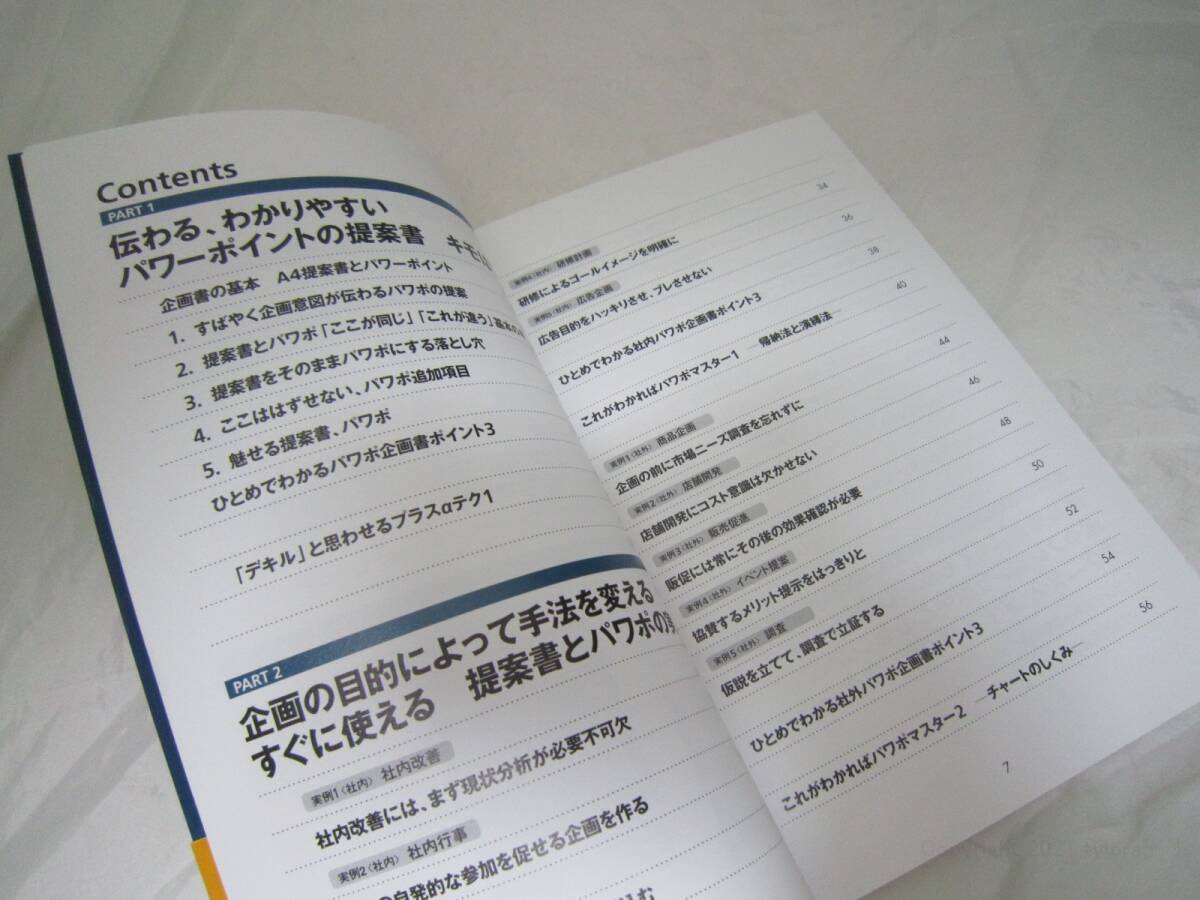 Contents
PART 1
伝わる、わかりやすい
パワーポイントの提案書 キモは
企画書の基本 A4提案書とパワーポイント
1. すばやく企画意図が伝わるパワポの提案
2. 提案書とパワポ「ここが同じ」「これが違う」基本の
3. 提案書をそのままパワポにする落とし穴
4. ここははずせない、パワポ追加項目
5. 魅せる提案書、パワポ
ひとめでわかるパワポ企画書ポイント3
「デキル」と思わせるプラスαテク1
PART 2
企画の目的によって手法を変える
すぐに使える 提案書とパワポの
実例1〈社内〉 社内改善
社内改善には、まず現状分析が必要不可欠
実例2〈社内〉 社内行事
の自発的な参加を促せる企画を作る
む
〈社内〉 研修計画
研修によるゴールイメージを明確に 34
〈社内〉 広告企画
広告目的をハッキリさせ、ブレさせない 36
ひとめでわかる社内パワポ企画書ポイント3 38
これがわかればパワポマスター1 ―帰納法と演繹法― 40
実例1〈社外〉 商品企画
企画の前に市場ニーズ調査を忘れずに 44
実例2〈社外〉 店舗開発
店舗開発にコスト意識は欠かせない 46
実例3〈社外〉 販売促進
販促には常にその後の効果確認が必要 48
実例4〈社外〉 イベント提案
協賛するメリット提示をはっきりと 50
実例5〈社外〉 調査
仮説を立てて、調査で立証する 52
ひとめでわかる社外パワポ企画書ポイント3 54
これがわかればパワポマスター2 ―チャートのしくみ― 56
7